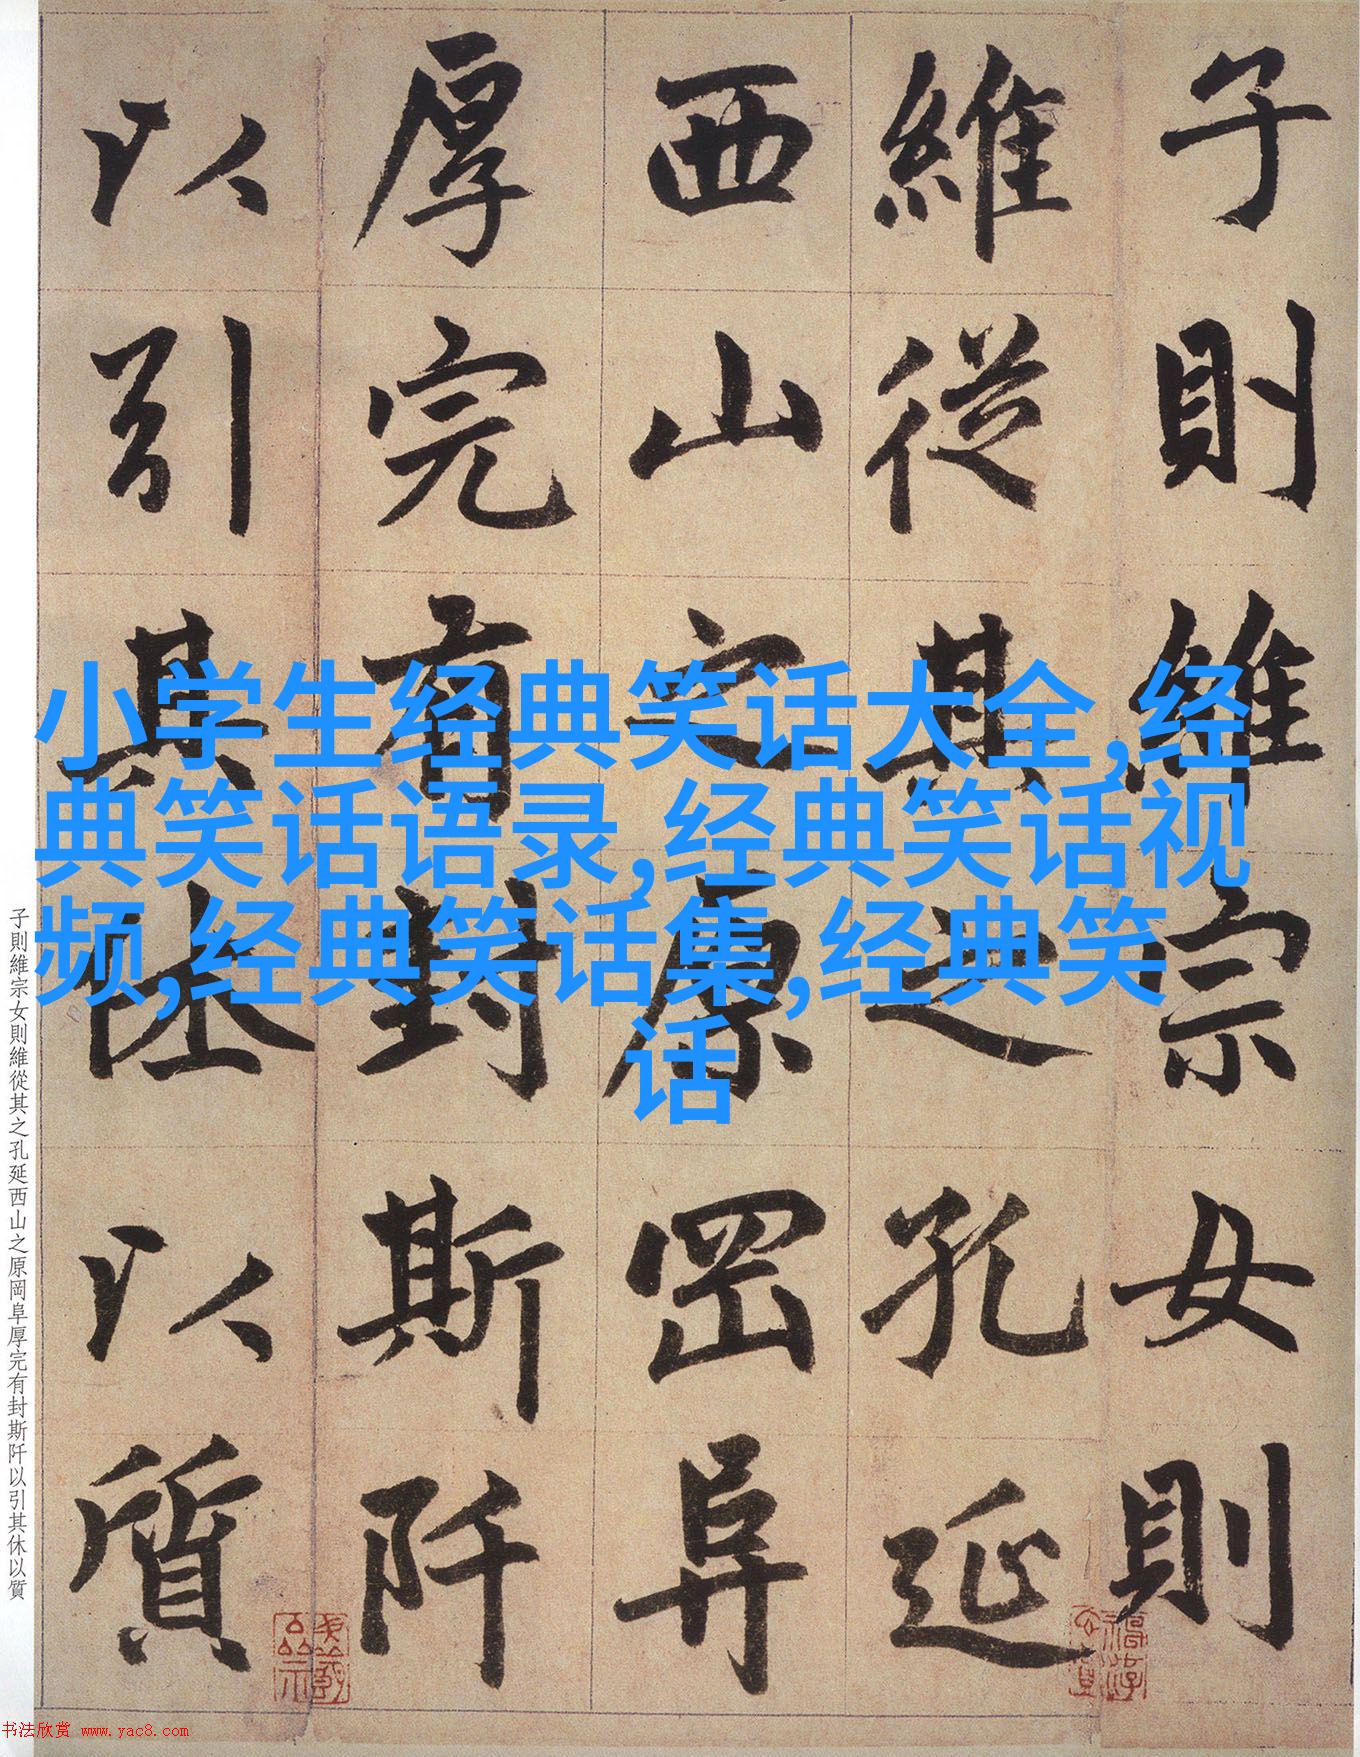 子則維宗女則
維從其之孔延
西山之原岡阜
厚完有封斯阡
以引其休以質
小学生经典笑话大全,经
典笑话语录,经典笑话视
频,经典笑话集,经典笑
话
子則維宗女則維從其之孔延西山之原岡阜厚完有封斯阡以引其休以質
书法欣赏 www.yac8.com